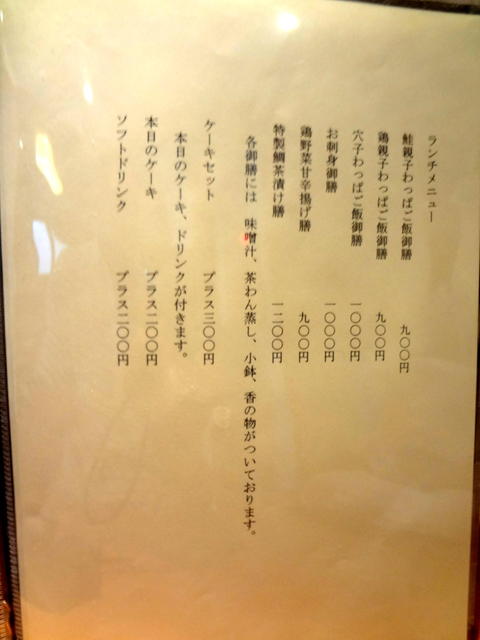 ランチメニュー
鮭親子わっぱご飯御膳 九〇〇円
鶏親子わっぱご飯御膳 九〇〇円
穴子わっぱご飯御膳 一〇〇〇円
お刺身御膳 一〇〇〇円
鶏野菜甘辛揚げ膳 九〇〇円
特製鯛茶漬け膳 一二〇〇円
各御膳には 味噌汁、茶わん蒸し、小鉢、香の物がついております。
ケーキセット プラス三〇〇円
本日のケーキ、ドリンクが付きます。
本日のケーキ プラス二〇〇円
ソフトドリンク プラス二〇〇円